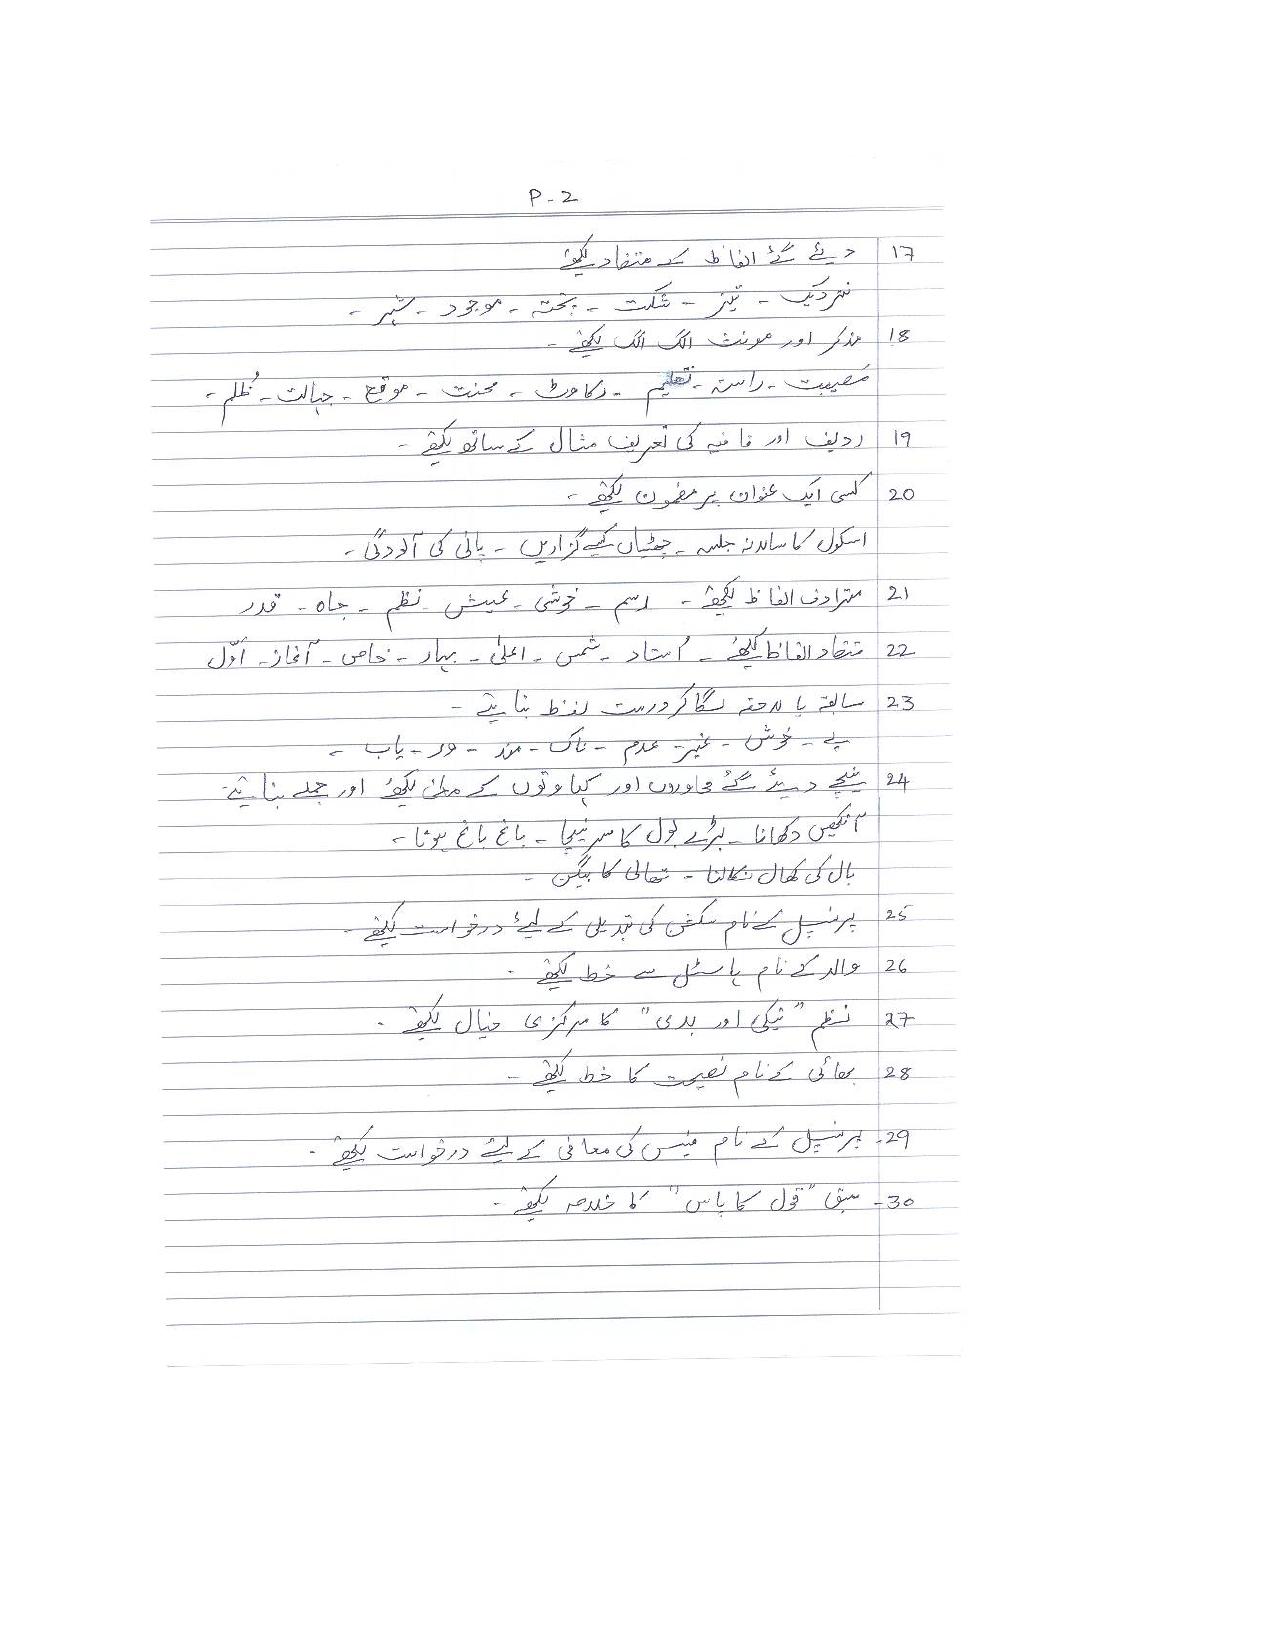 P-2
17 دیئے گئے الفاظ کے متضاد لکھئے
نزدیک - تیز - شکست - پختہ - موجود - شہر -
18 مذکر اور مونث الگ الگ لکھئے -
مُصیبت - راستہ - تعلیم - رکاوٹ - محنت - موقع - جہالت - ظُلم -
19 ردیف اور قافیہ کی تعریف مثال کے ساتھ لکھئے -
20 کسی ایک عنوان پر مضمون لکھئے -
اسکول کا سالانہ جلسہ - چھٹیاں کیسے گزاریں - پانی کی آلودگی -
21 مترادف الفاظ لکھئے - رسم - خوشی - عیش - نظم - جاہ - قدر
22 متضاد الفاظ لکھئے - اُستاد - شمس - اعلیٰ - بہار - خاص - آغاز - اوّل
23 سابقہ یا لاحقہ لگا کر درست لفظ بنائیے -
بے - خوش - غیر - عدم - ناک - مند - ور - یاب -
24 نیچے دیئے گئے محاوروں اور کہاوتوں کے معنی لکھئے اور جملے بنائیے -
آنکھیں دکھانا - بڑے بول کا سر نیچا - باغ باغ ہونا -
بال کی کھال نکالنا - تھالی کا بیگن -
25 پرنسپل کے نام سکشن کی تبدیلی کے لیئے درخواست لکھئے -
26 والد کے نام ہاسٹل سے خط لکھئے -
27 نظم "نیکی اور بدی" کا مرکزی خیال لکھئے -
28 بھائی کے نام نصیحت کا خط لکھئے -
29- پرنسپل کے نام فیس کی معافی کے لیئے درخواست لکھئے -
30- سبق "قول کا پاس" کا خلاصہ لکھئے -